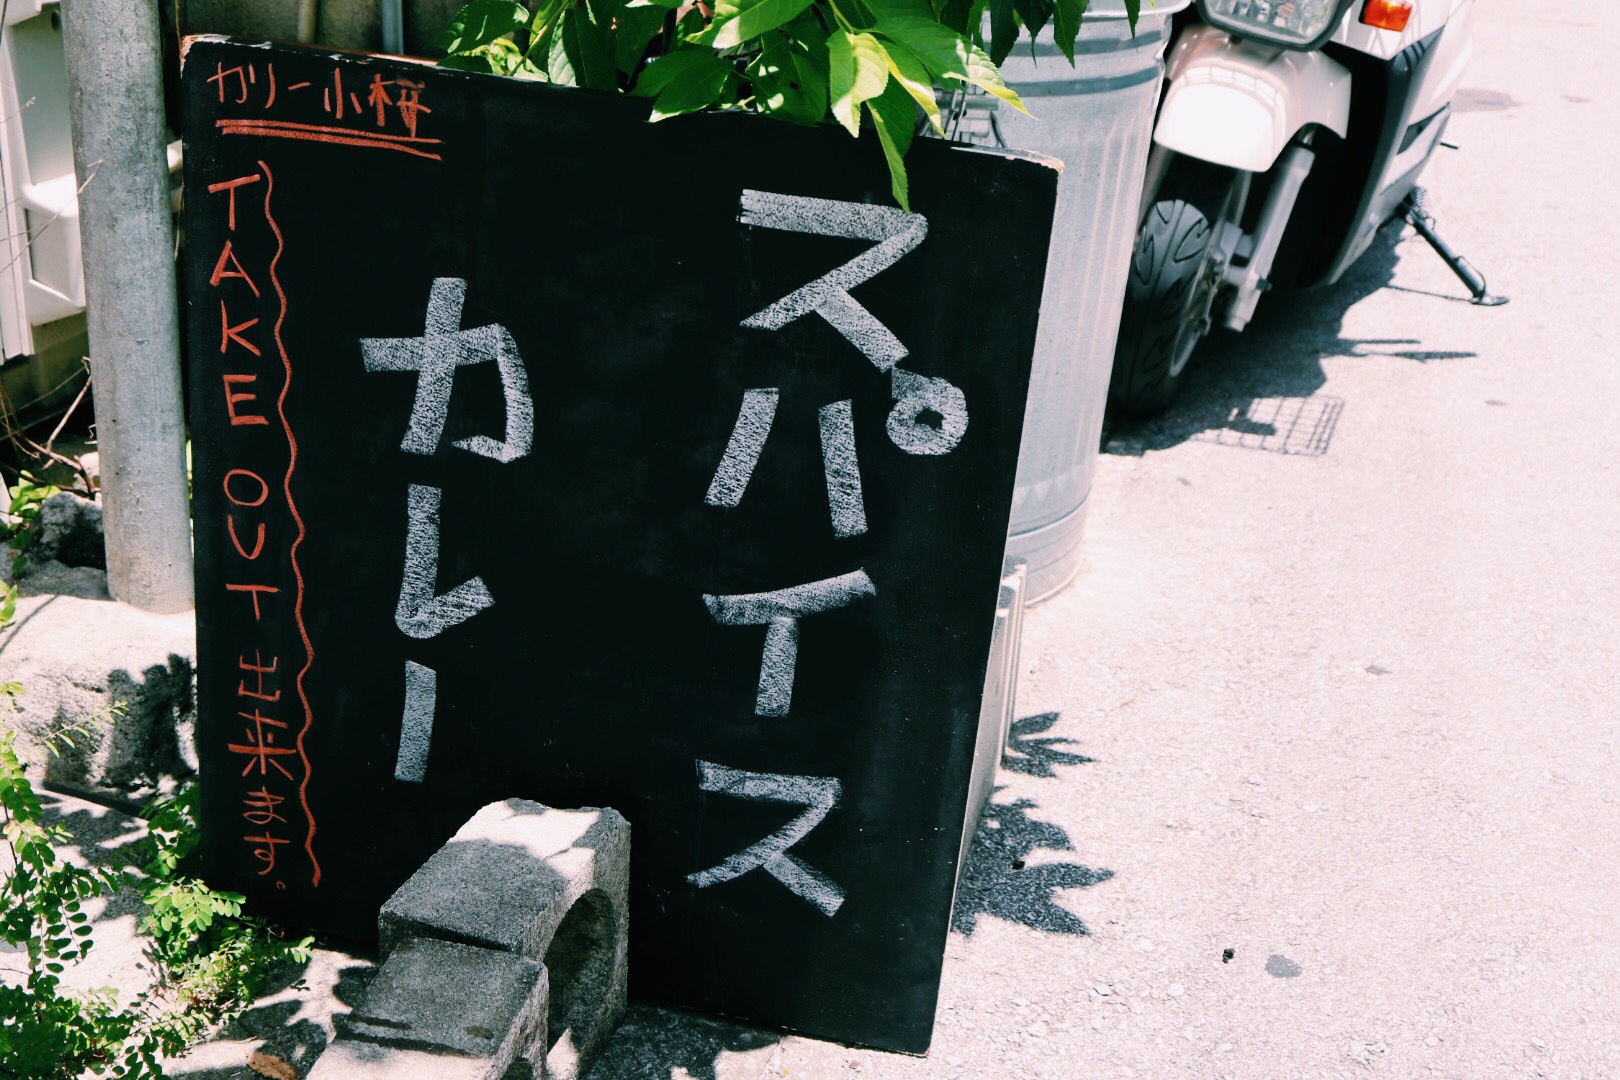 カリー小桜
スパイス
カレー
TAKE OUT 出来ます。